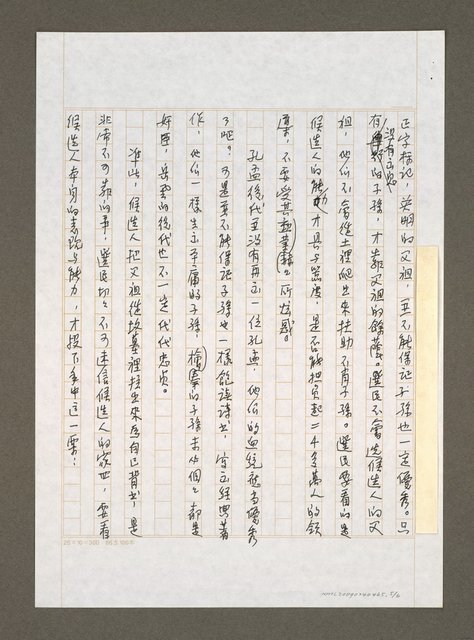 正字標记，英明的父祖，並不能保证子孫也一定優秀。只
有沒有出息的子孫，才靠父祖的餘蔭。選民不會選候選人的父
祖，他們不會從土裡爬出來扶助不肖子孫。選民要看的是
候選人的能力才具与氣度，是否能担負起二千多萬人的領
導，不要受其之所炫惑。
孔孟後代並沒有再出一位孔孟，他們的血統應當優秀
了吧？可是並不能保证子孫也一樣能读诗书，立經典著
作，他們一樣生出平庸的子孫。檜的子孫未必個個都是
奸臣，岳飛的後代也不一定代代忠贞。
準此，候選人把父祖從坟墓裡拉出來為自己背书，是
非常不可靠的事，選民切切不可迷信候選人的家世，要看
候選人本身的表現与能力，才投下手中這一票！